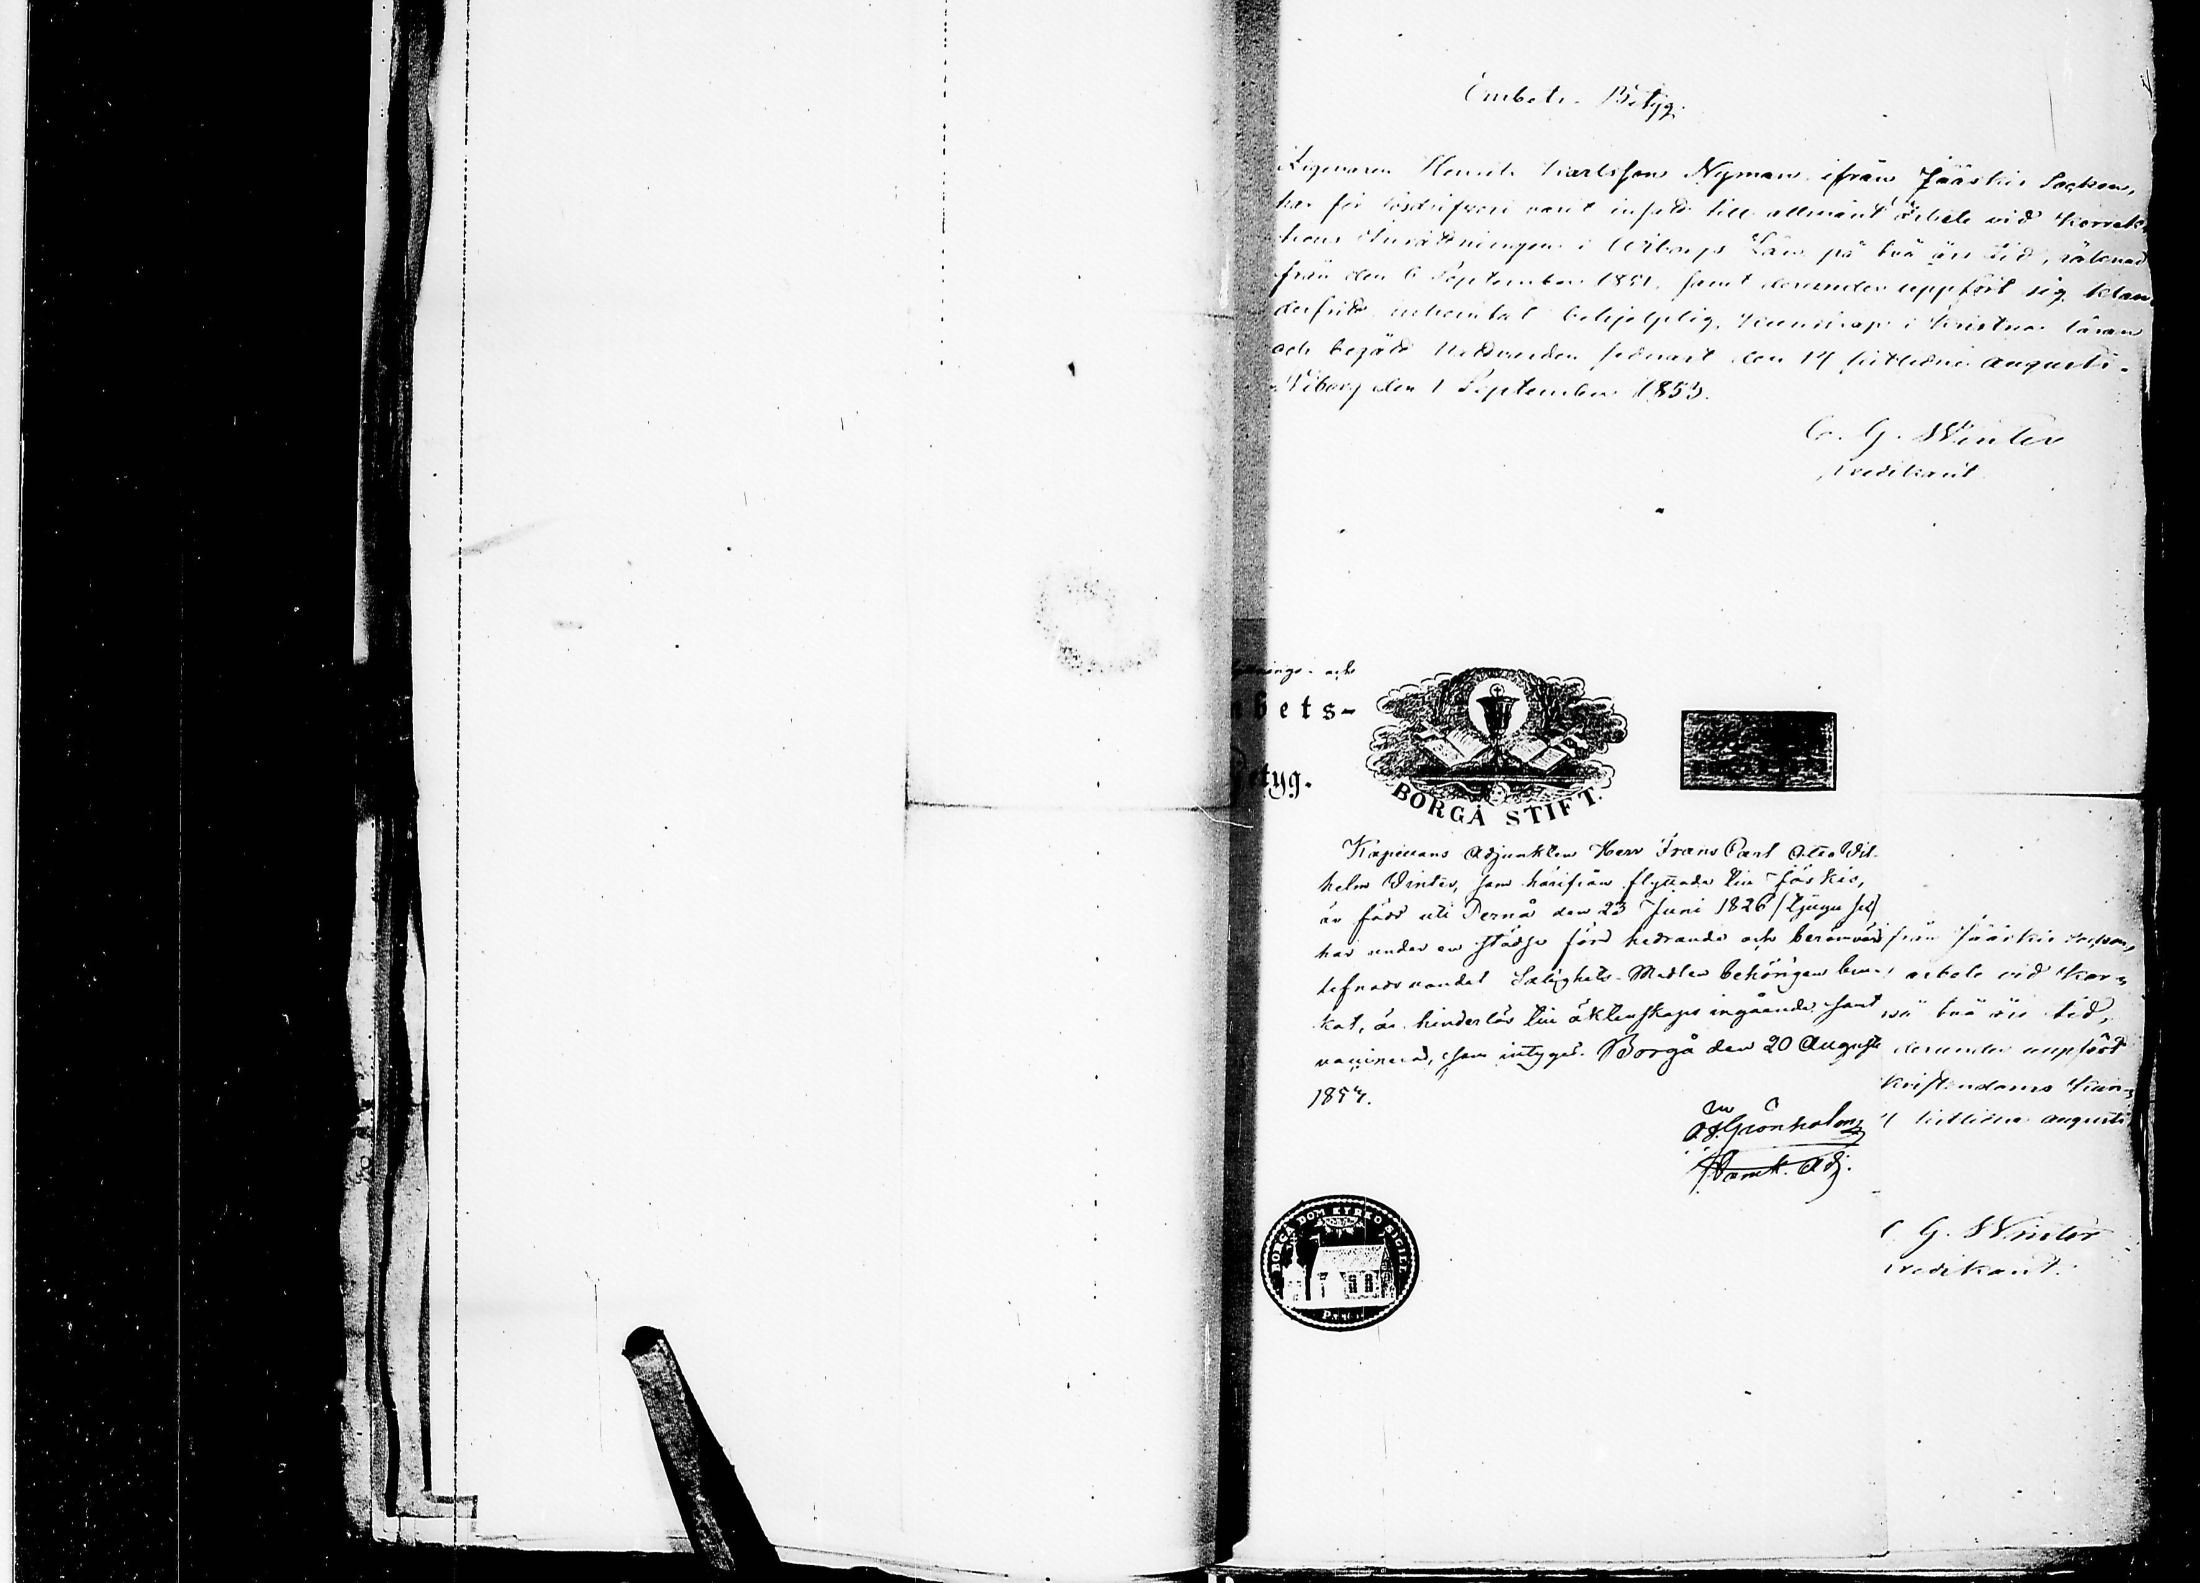 Embets-Betyg.
Henrik Karlsson Nyman ifrån Jääskis Socken,
har för varit till allmänt arbete vid Korrek-
tions Inrättningen i Wiborgs Län på två års tid, räknad
från den 6 September 1851, samt derunder uppfört sig klan-
derfritt, behjelplig kunskap i Kristna läran
och begått Nattvarden sednast den 14 sistledne Augusti.
Wiborg den 1 September 1853.
C. G. Winter
Predikant.
Flyttnings- och
bets-
Betyg.
BORGÅ STIFT.
Kapellans Adjunkten Herr Frans Carl Otto Wil-
helm Winter, som härifrån flyttade till Jäskis,
är född uti Pernå den 23 Juni 1826 / tjugu sex/
har under en städse förd hedrande och berömvärd
lefnadsvandel Salighets-Medlen behörigen bru-
kat, är hinderlös till äktenskaps ingående samt
vaccinerad, som intygas. Borgå den 20 Augusti
1854.
A. F. Grönholm
Adj.
från Jääskis socken,
arbete vid Kor-
på två års tid,
derunder uppfört
Kristendoms kun-
sistledne Augusti
C. G. Winter
Predikant.
BORGÅ DOM KYRKO SIGILL